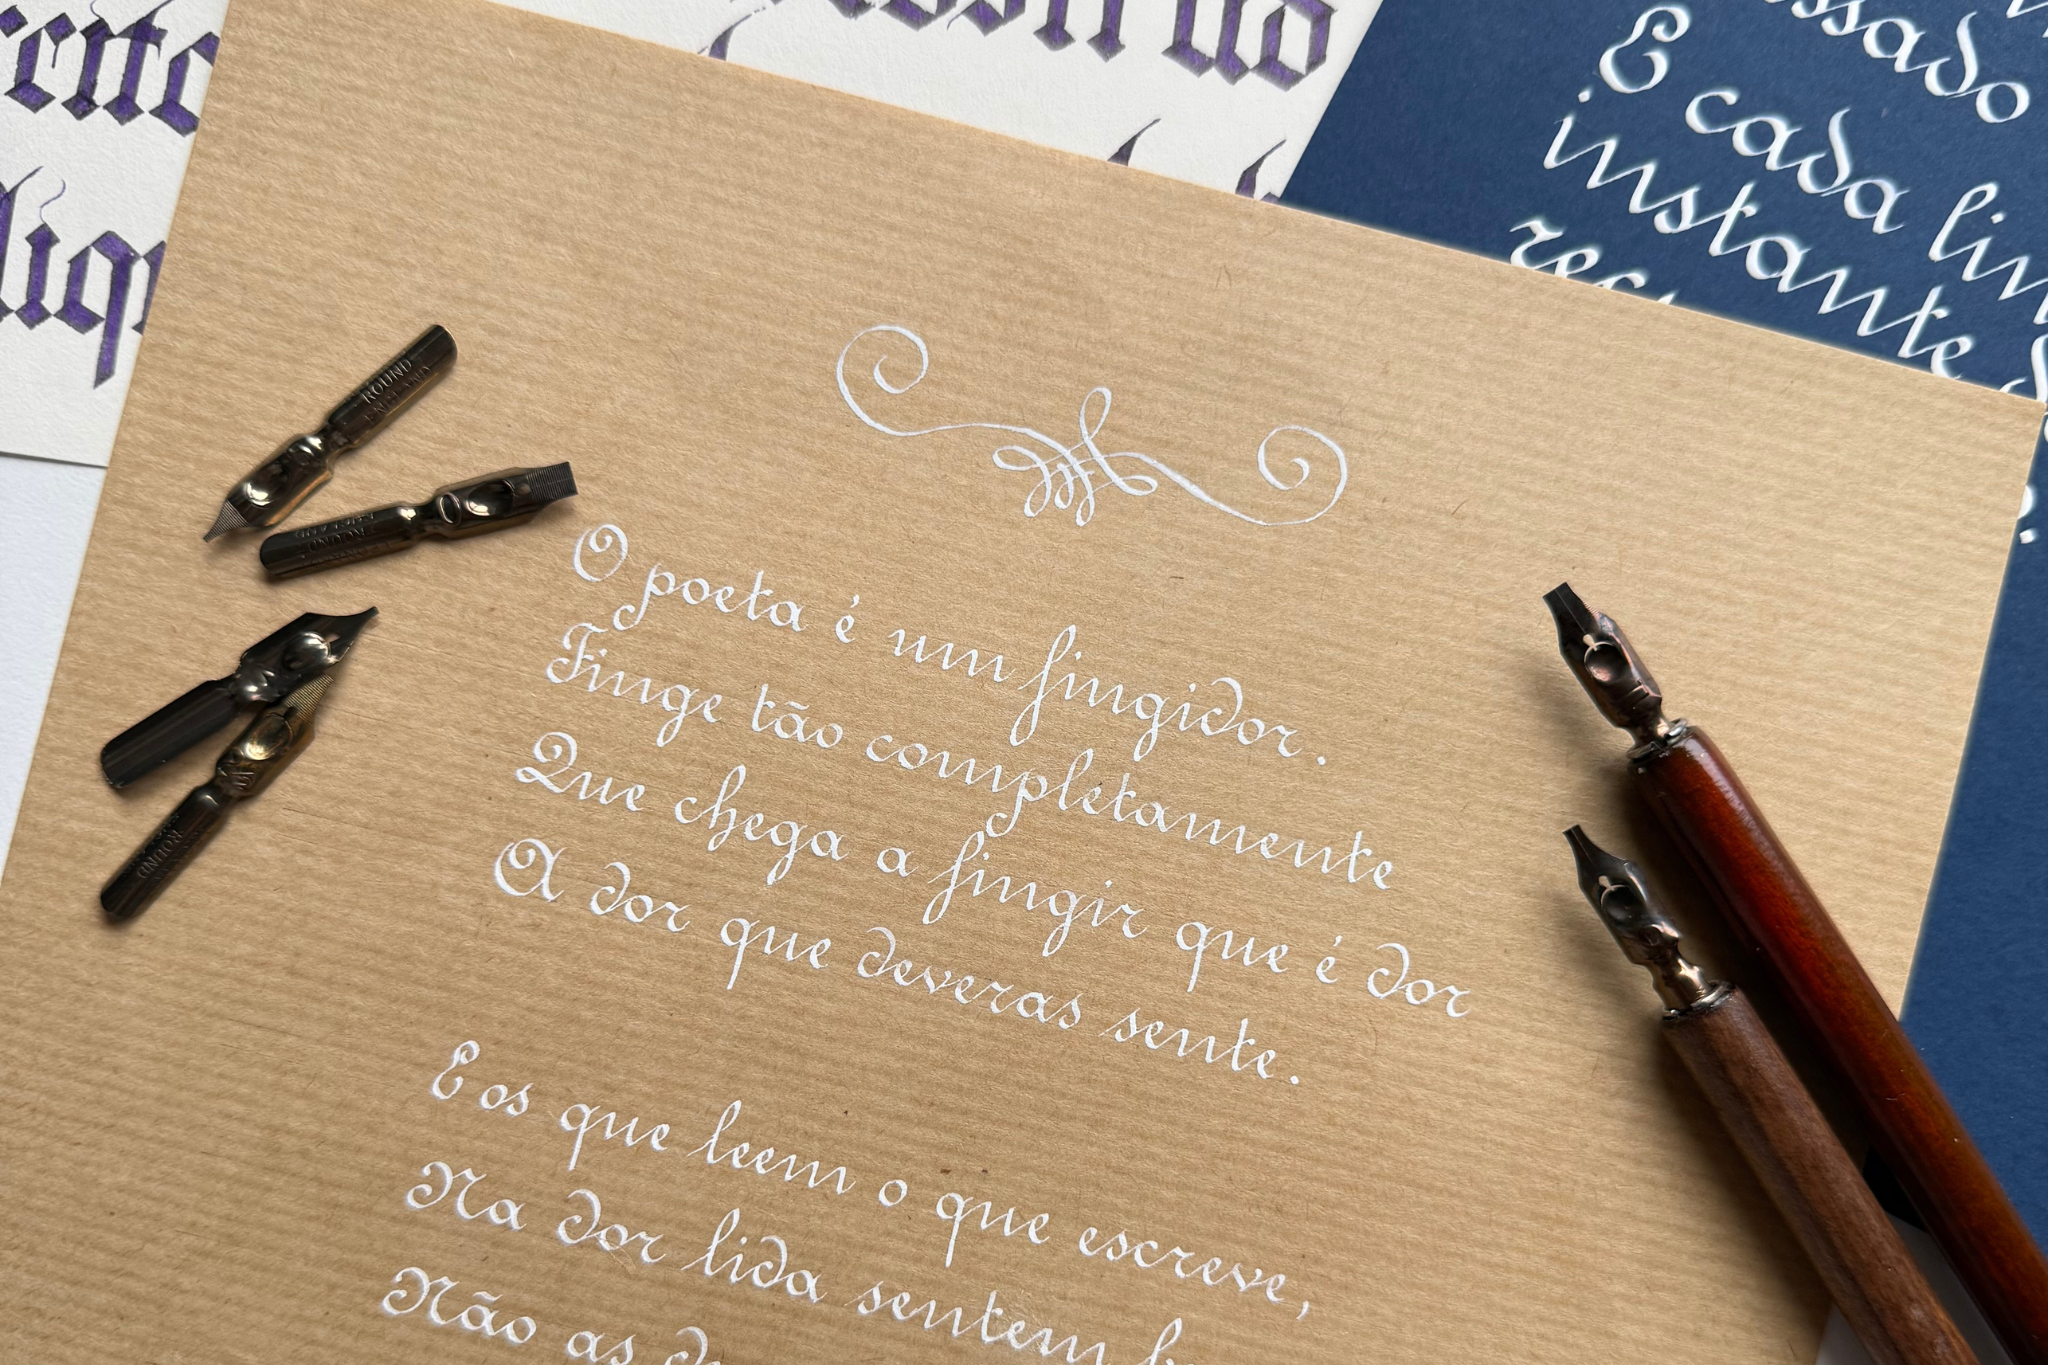 E cada
instante
ROUND
ENGLAND
ROUND
O poeta é um fingidor.
Finge tão completamente
Que chega a fingir que é dor
A dor que deveras sente.
E os que leem o que escreve,
Na dor lida sentem
Não as
ROUND